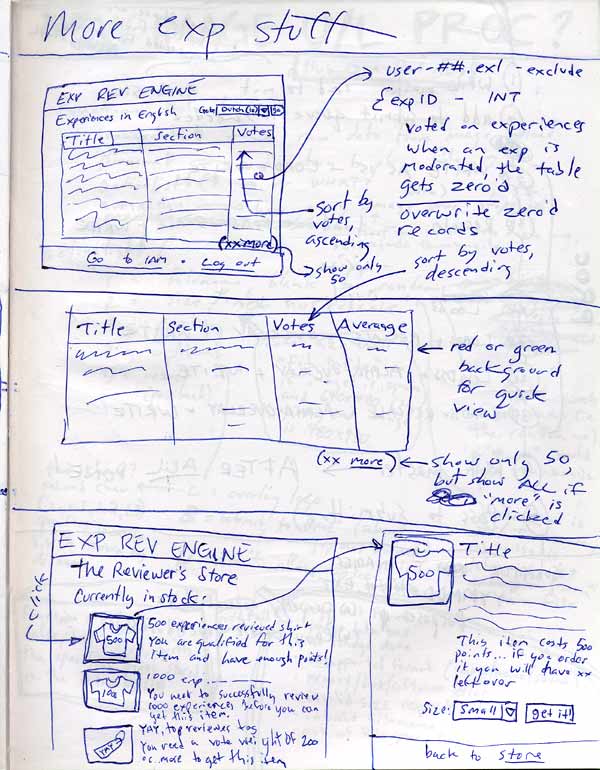 More exp stuff
EXP REV ENGINE
Experiences in English
Goto: Dutch (10) Go
Title Section Votes
(xx more)
Go to IAM • Log out
user-##.exl - exclude
{expID - INT
voted on experiences
when an exp is
moderated, the table
gets zero'd
overwrite zero'd
records
sort by
votes,
ascending
show only
50
sort by votes,
descending
Title Section Votes Averange
red or green
background
for quick
view
(xx more)
show only 50,
but show ALL if
"more" is
clicked
EXP REV ENGINE
The Reviewer's Store
Currently in stock:
click
500
500 experiences reviewed shirt
You are qualified for this
item and have enough points!
1000 exp
You need to successfully review
1000 experiences before you can
get this item.
YAY
YAY, top reviewers bag
You need a vote weight of 200
or more to get this item
500
Title
This item costs 500
points... if you order
it you will have xx
leftover
Size: Small get it!
back to store